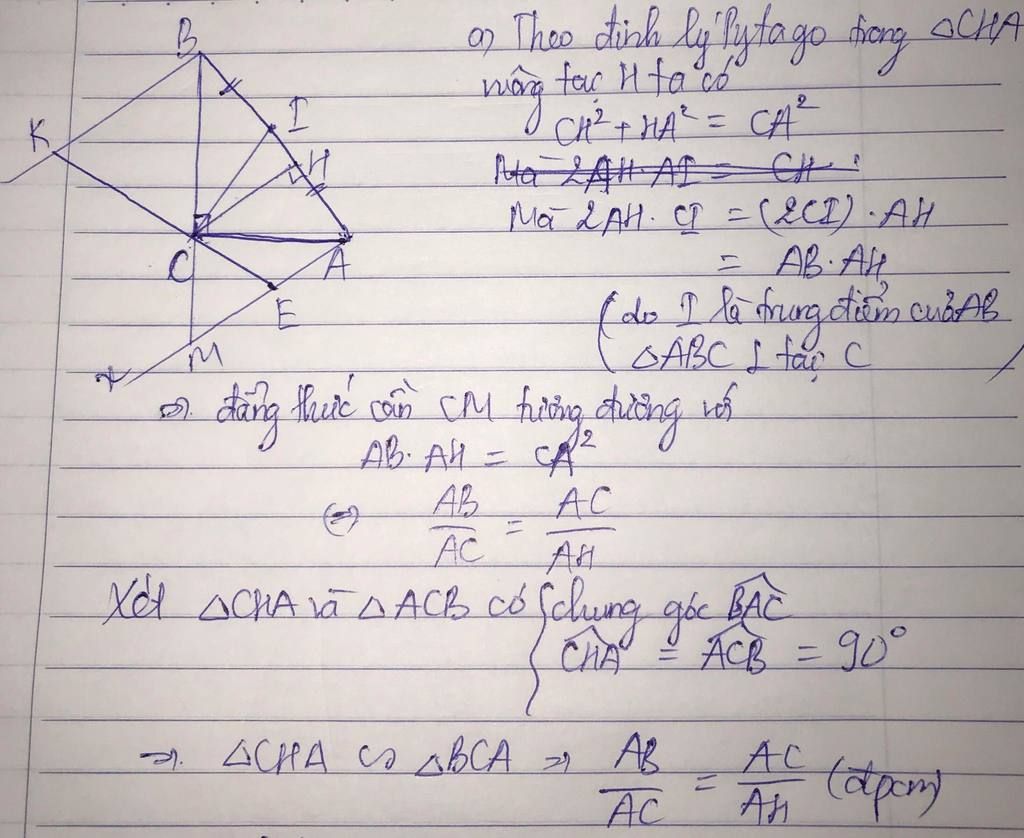 B
I
K
H
C
A
E
M
x
a) Theo định lý Pytago trong △CHA
vuông tại H ta có
CH² + HA² = CA²
Mà 2AH. AI = CH
Mà 2AH. CI = (2CI). AH
= AB. AH
(do I là trung điểm của AB
△ABC ⊥ tại C)
=> đẳng thức cần CM tương đương với
AB. AH = CA²
(=) AB/AC = AC/AH
Xét △CHA và △ACB có { chung góc BAC
CHA = ACB = 90°
=> △CHA ∽ △BCA => AB/AC = AC/AH (đpcm)